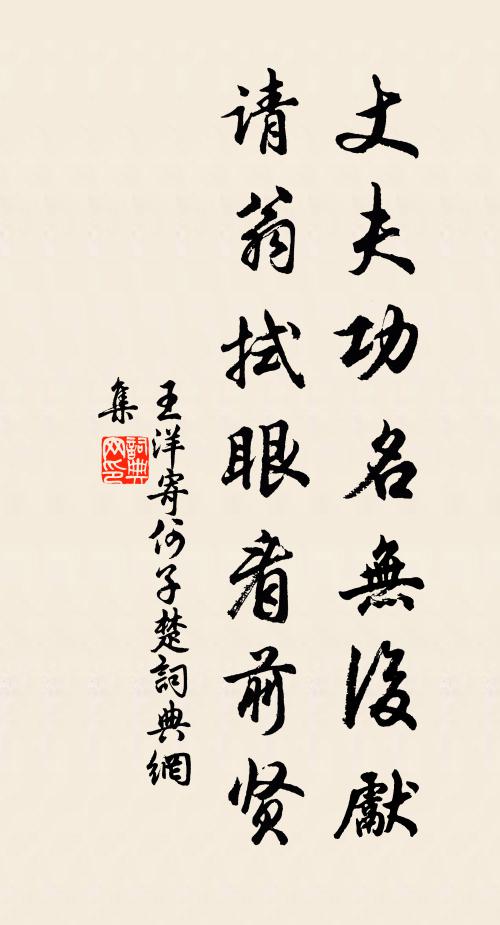 丈夫功名無後獻
请翁拭眼看前贤
王洋寄何子楚詞典網
集
詞典网印